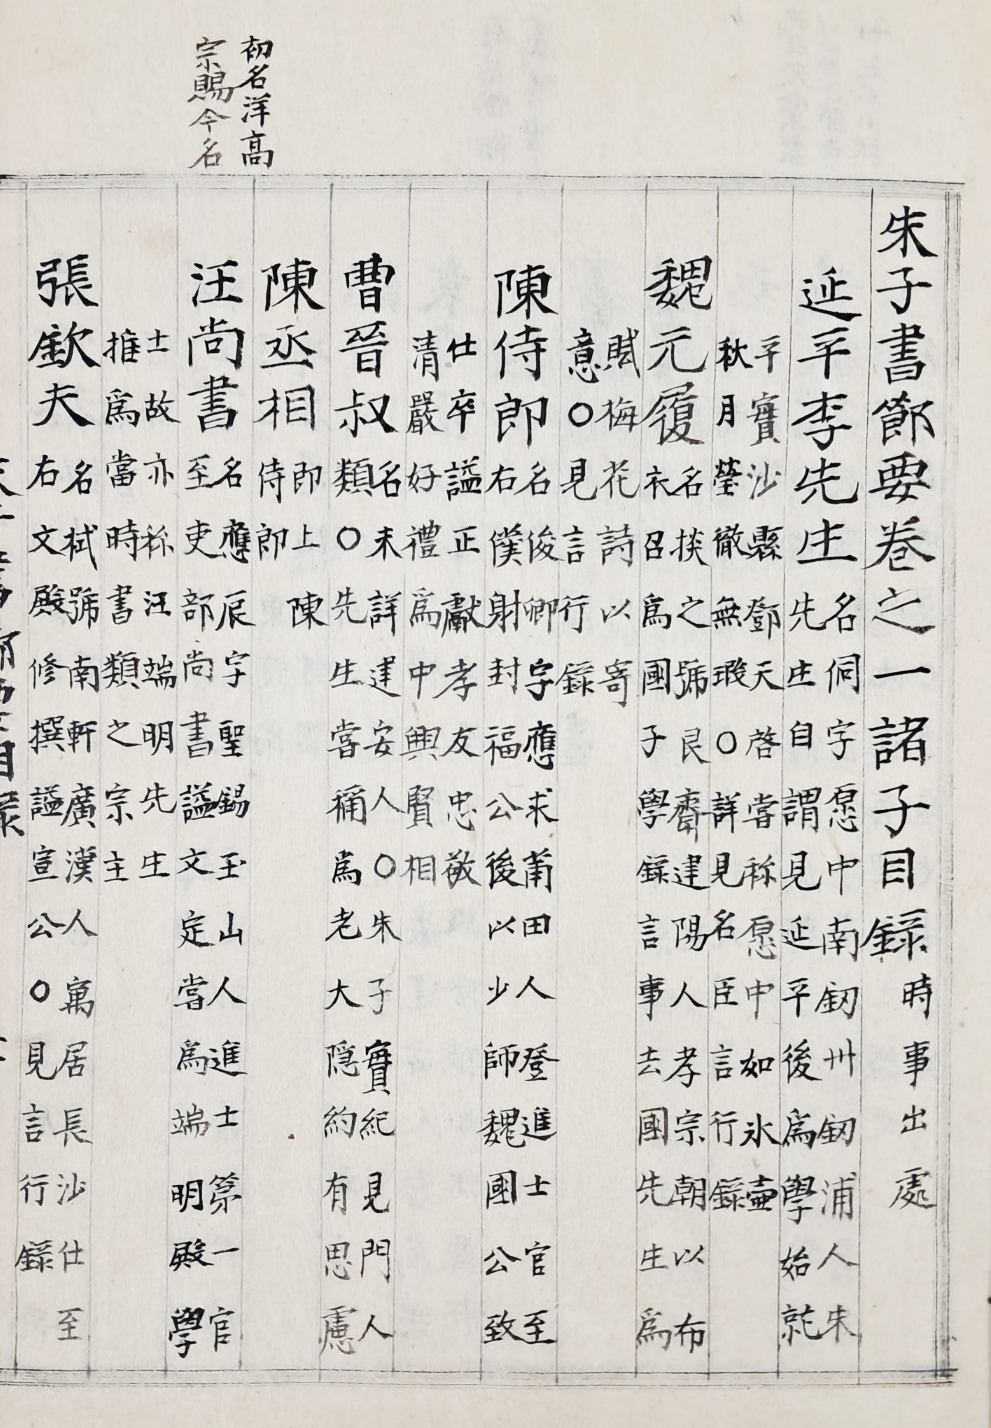 初名洋高
宗賜今名
朱子書節要卷之一 諸子目錄 時事出處
延平李先生 名侗字愿中南劒州劒浦人朱
先生自謂見延平後爲學始就
平實沙縣鄧天啓嘗称愿中如氷壷
秋月瑩徹無瑕○詳見名臣言行錄
魏元履 名掞之號艮齋建陽人孝宗朝以布
衣召爲國子學錄言事去國先生爲
賦梅花詩以寄
意○見言行錄
陳侍郎 名俊卿字應求莆田人登進士官至
右僕射封福公後以少師魏國公致
仕卒謚正獻孝友忠敬
清嚴好禮爲中興賢相
曹晉叔 名未詳建安人○朱子實紀見門人
類○先生嘗稱爲老大隱約有思慮
陳丞相 即上陳
侍郎
汪尚書 名應辰字聖錫玉山人進士第一官
至吏部尚書謚文定嘗爲端明殿學
士故亦称汪端明先生
推爲當時書類之宗主
張欽夫 名栻號南軒廣漢人寓居長沙仕至
右文殿修撰謚宣公○見言行錄